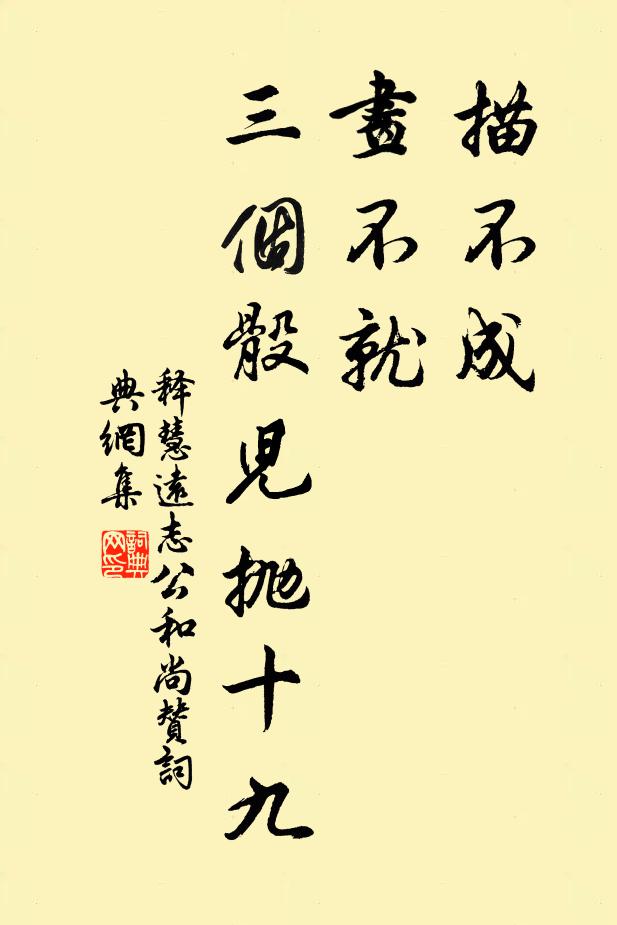 描不成
畫不就
三個骰兒拋十九
释慧遠志公和尚赞詞
典網集
詞典
网印